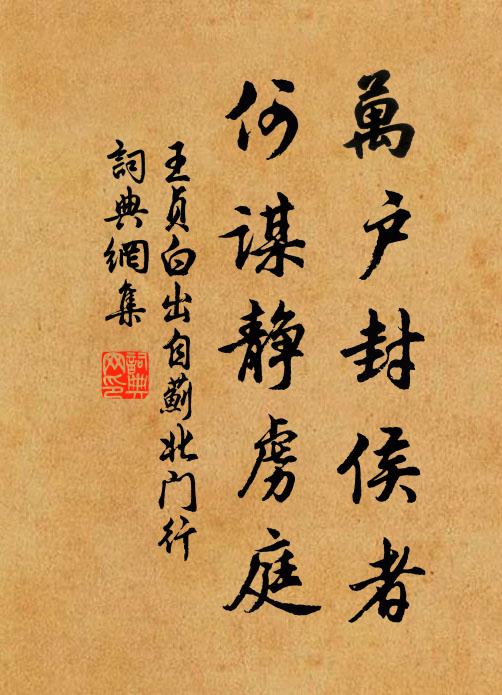 萬户封侯者
何謀静虜庭
王貞白出自薊北门行
詞典網集
詞典網印